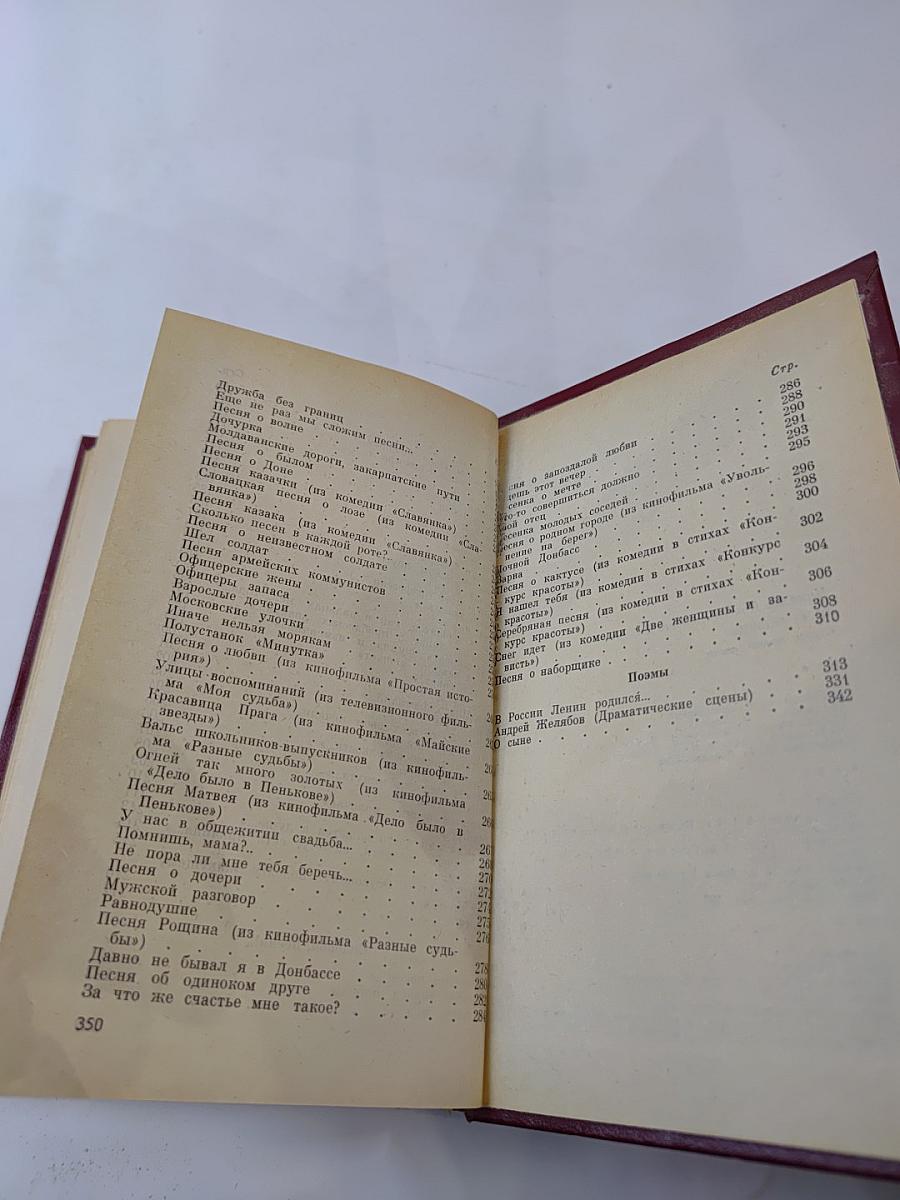 Дружба без границ . . . . .
Еще не раз мы сложим песни... . .
Песня о волне . . . . .
Дочурка . . . . .
Молдаванские дороги, закарпатские пути .
Песня о былом . . . . .
Песня о Доне . . . . .
Песня казачки (из комедии «Славянка»)
Словацкая песня о лозе (из комедии «Сла-
вянка») . . . . .
Песня казака (из комедии «Славянка») .
Сколько песен в каждой роте? . . .
Песня о неизвестном солдате . . .
Шел солдат . . . . .
Песня армейских коммунистов . . .
Офицерские жены . . . . .
Офицеры запаса . . . . .
Взрослые дочери . . . . .
Московские улочки . . . . .
Иначе нельзя морякам . . . . .
Полустанок «Минутка» . . . . .
Песня о любви (из кинофильма «Простая исто-
рия») . . . . .
Улицы воспоминаний (из телевизионного филь-
ма «Моя судьба») . . . . .
Красавица Прага (из кинофильма «Майские
звезды») . . . . .
Вальс школьников-выпускников (из кинофиль-
ма «Разные судьбы») . . . . .
Огней так много золотых (из кинофильма
«Дело было в Пенькове») . . . . .
Песня Матвея (из кинофильма «Дело было в
Пенькове») . . . . .
У нас в общежитии свадьба... . . . .
Помнишь, мама?.. . . . . .
Не пора ли мне тебя беречь... . . . . 270
Песня о дочери . . . . . 272
Мужской разговор . . . . . 274
Равнодушие . . . . . 275
Песня Рощина (из кинофильма «Разные судь- 276
бы») . . . . .
Давно не бывал я в Донбассе . . . . 278
Песня об одиноком друге . . . . . 280
За что же счастье мне такое? . . . . . 282
284
350
Стр.
о запоздалой любви . . . . 286
этот вечер . . . . . 288
о мечте . . . . . 290
совершиться должно . . . . 291
отец . . . . . 293
молодых соседей . . . . . 295
Песня о родном городе (из кинофильма «Уволь-
нение на берег») . . . . . 296
Ночной Донбасс . . . . . 298
Варна . . . . . 300
Песня о кактусе (из комедии в стихах «Кон-
курс красоты») . . . . . 302
Я нашел тебя (из комедии в стихах «Конкурс
красоты») . . . . . 304
Серебряная песня (из комедии в стихах «Кон-
курс красоты») . . . . . 306
Снег идет (из комедии «Две женщины и за-
висть») . . . . . 308
Песня о наборщике . . . . . 310
Поэмы
В России Ленин родился... . . . . 313
Андрей Желябов (Драматические сцены) . . . 331
О сыне . . . . . 342